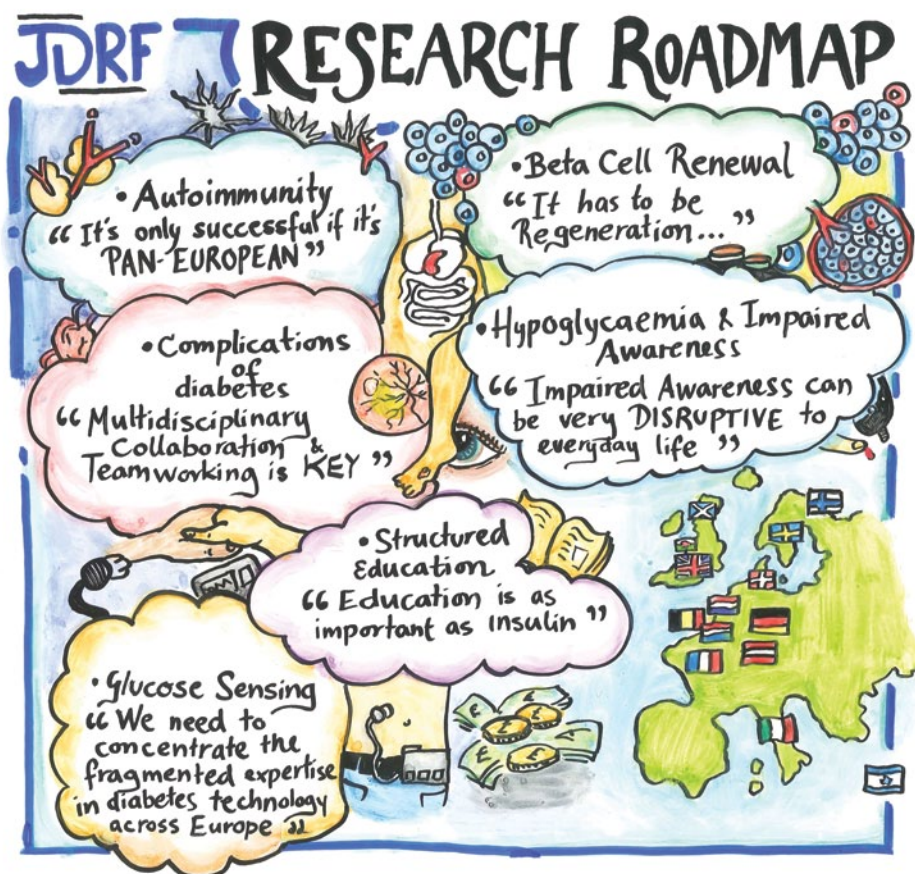 JDRF RESEARCH ROADMAP
• Autoimmunity
“ It's only successful if it's
PAN-EUROPEAN ”
• Beta Cell Renewal
“ It has to be
Regeneration... ”
• Complications
of
diabetes
“ Multidisciplinary
Collaboration &
Teamworking is KEY ”
• Hypoglycaemia & Impaired
Awareness
“ Impaired Awareness can
be very DISRUPTIVE to
everyday life ”
• Structured
Education
“ Education is as
important as insulin ”
• Glucose Sensing
“ We need to
concentrate the
fragmented expertise
in diabetes technology
across Europe ”
£
£
£
£
£